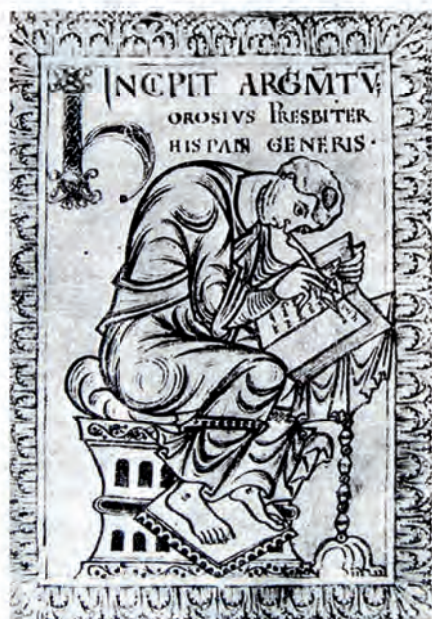 INCIPIT ARGMTV
OROSIVS PRESBITER
HISPANI GENERIS·